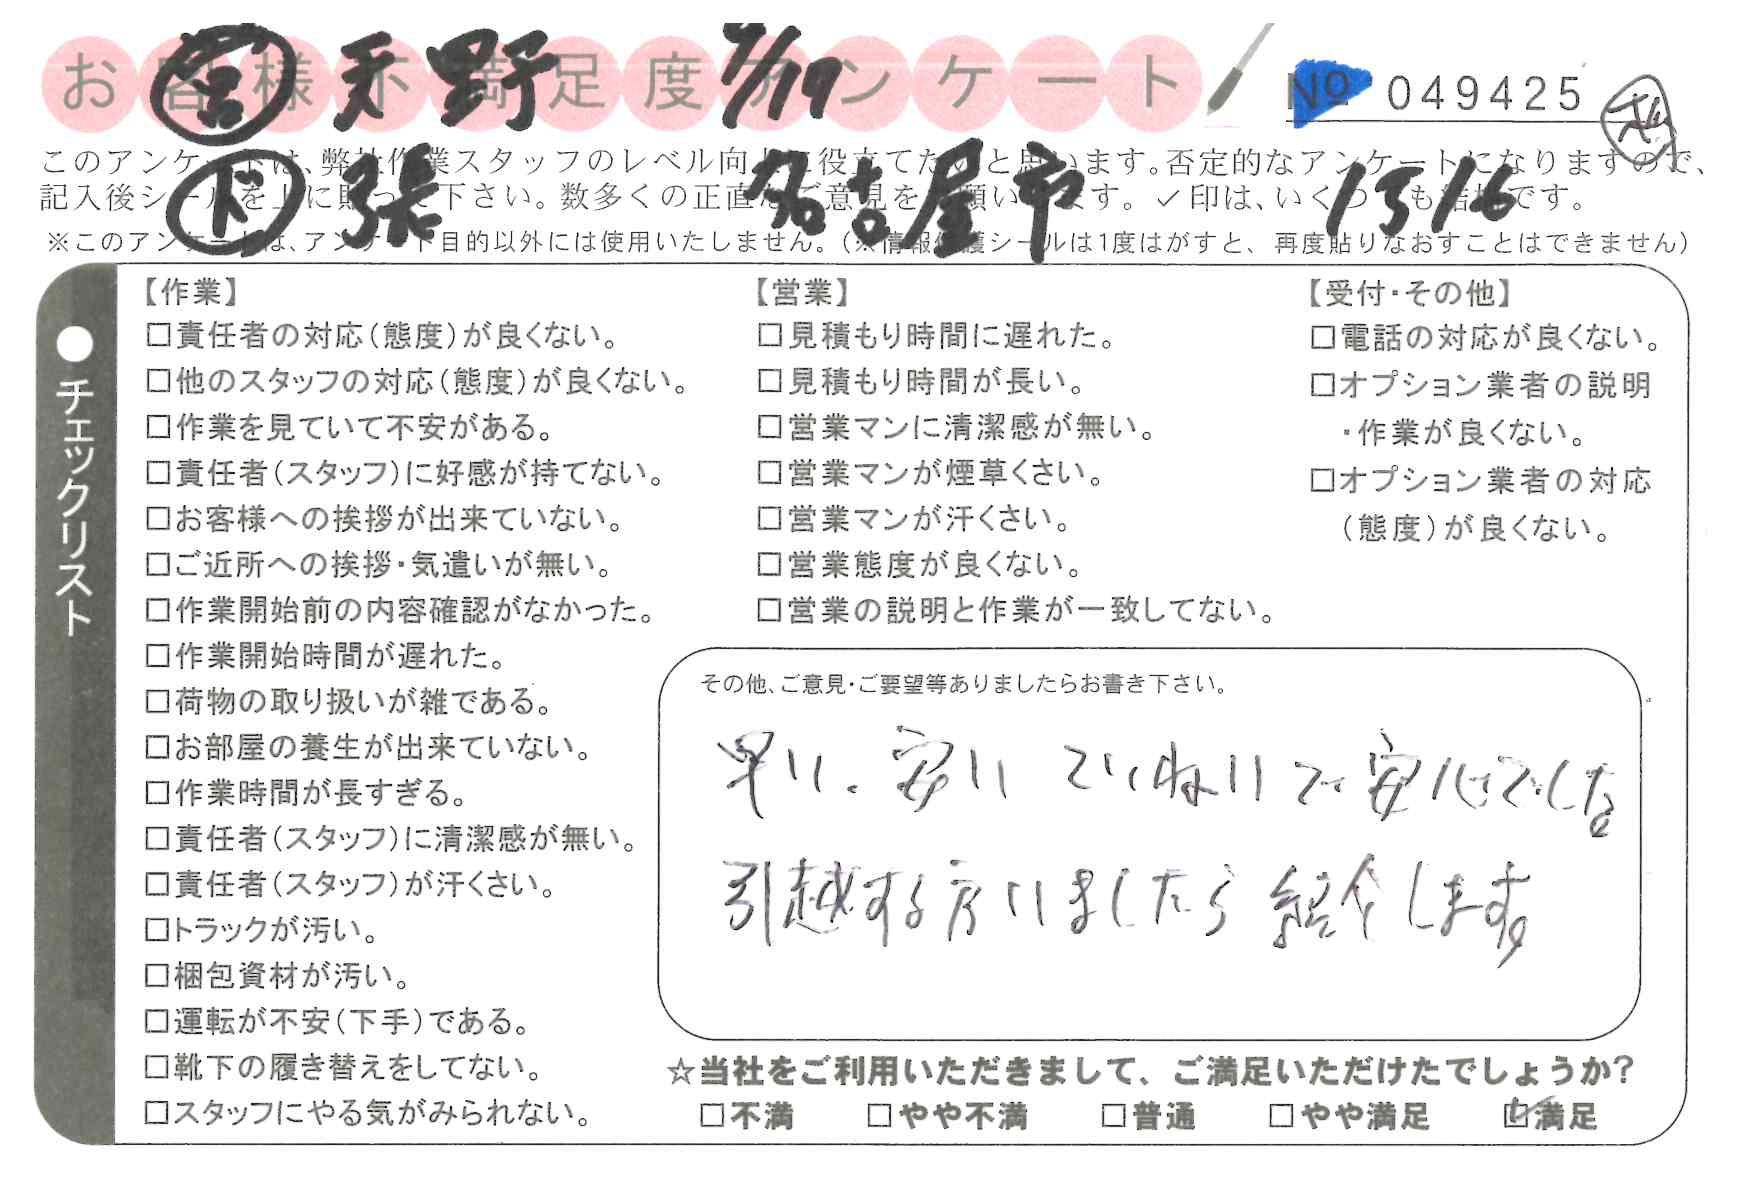 お客様不満足度アンケート
天野 7/19
№ 049425
ド 張 名古屋市 1516
このアンケートは、弊社作業スタッフのレベル向上に役立てたいと思います。否定的なアンケートになりますので、
記入後シールを上に貼って下さい。数多くの正直なご意見をお願いします。✓印は、いくつでも結構です。
※このアンケートは、アンケート目的以外には使用いたしません。(※情報保護シールは1度はがすと、再度貼りなおすことはできません)
●チェックリスト
【作業】
□責任者の対応(態度)が良くない。
□他のスタッフの対応(態度)が良くない。
□作業を見ていて不安がある。
□責任者(スタッフ)に好感が持てない。
□お客様への挨拶が出来ていない。
□ご近所への挨拶・気遣いが無い。
□作業開始前の内容確認がなかった。
□作業開始時間が遅れた。
□荷物の取り扱いが雑である。
□お部屋の養生が出来ていない。
□作業時間が長すぎる。
□責任者(スタッフ)に清潔感が無い。
□責任者(スタッフ)が汗くさい。
□トラックが汚い。
□梱包資材が汚い。
□運転が不安(下手)である。
□靴下の履き替えをしてない。
□スタッフにやる気がみられない。
【営業】
□見積もり時間に遅れた。
□見積もり時間が長い。
□営業マンに清潔感が無い。
□営業マンが煙草くさい。
□営業マンが汗くさい。
□営業態度が良くない。
□営業の説明と作業が一致してない。
【受付・その他】
□電話の対応が良くない。
□オプション業者の説明
・作業が良くない。
□オプション業者の対応
(態度)が良くない。
その他、ご意見・ご要望等ありましたらお書き下さい。
早い、安い ていねいで安心でした。
引越する方いましたら紹介します。
☆当社をご利用いただきまして、ご満足いただけたでしょうか?
□不満 □やや不満 □普通 □やや満足 ☑満足